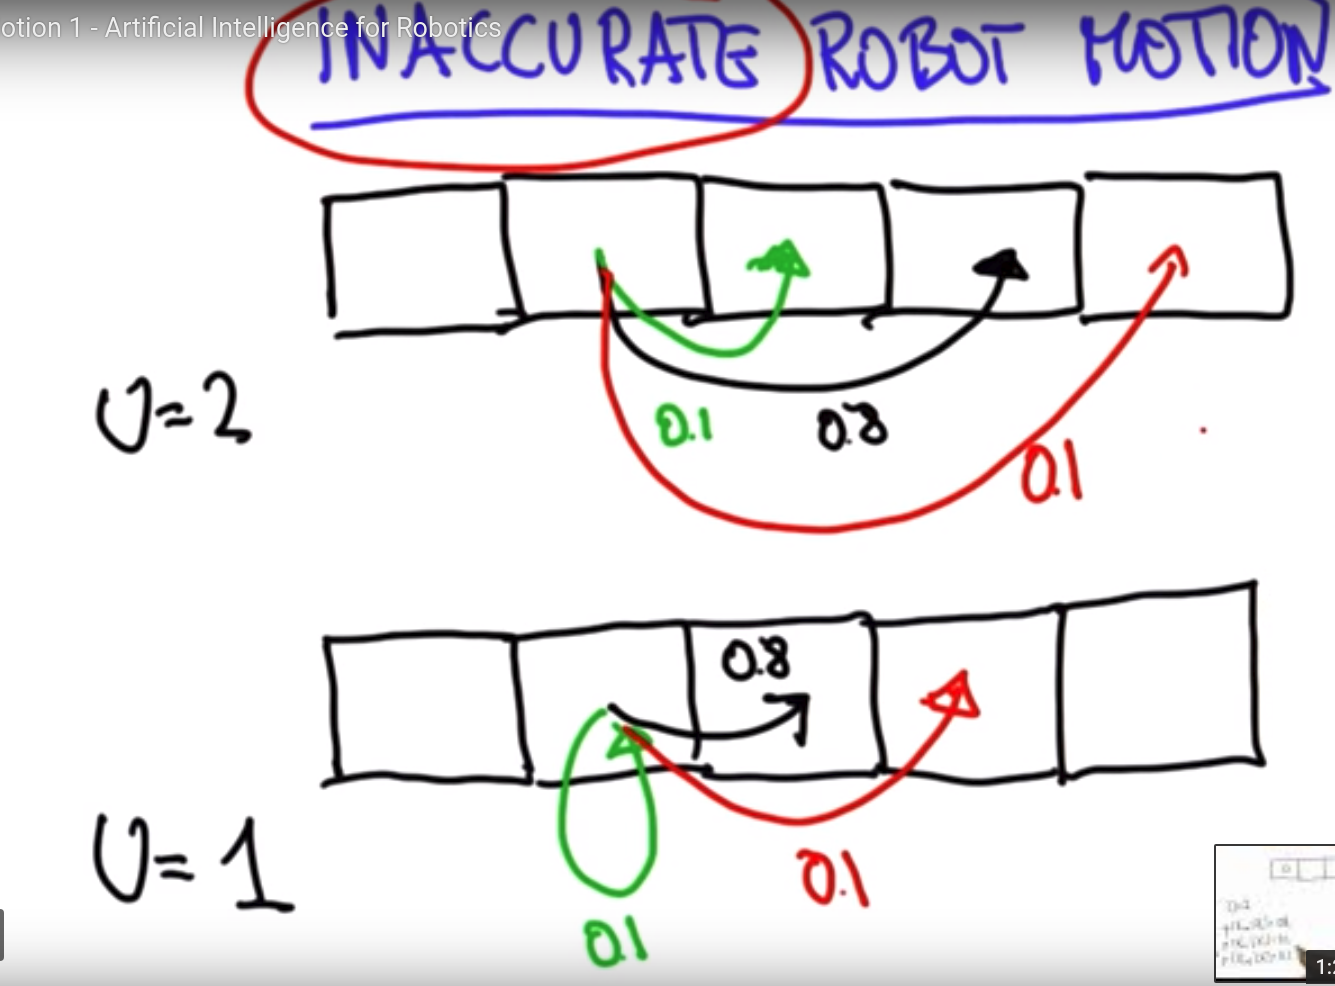 otion 1 - Artificial Intelligence for Robotics
INACCURATE ROBOT MOTION
U=2
0.1
0.8
0.1
0.8
U=1
0.1
0.1